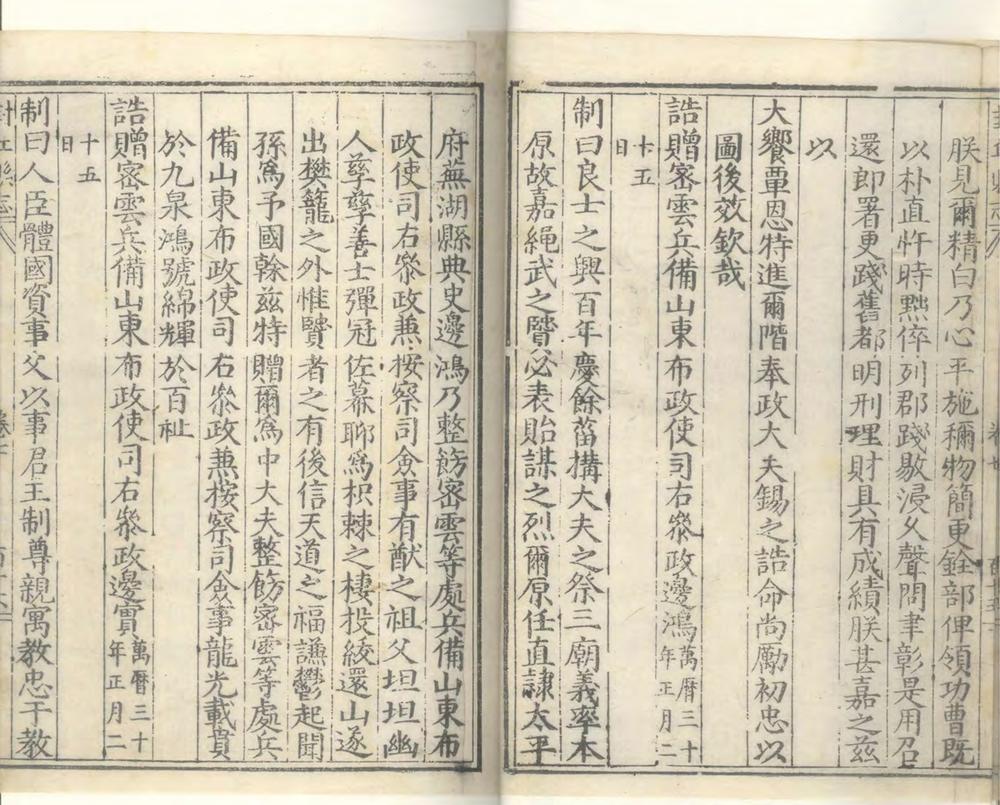 朕見爾精白乃心平施稱物簡更銓部俾領功曹既
以朴直忤時黜倅列郡踐敭浸久聲問聿彰是用召
還郎署更踐舊都明刑理財具有成績朕甚嘉之茲
以
大饗覃恩特進爾階奉政大夫錫之誥命尚勵初忠以
圖後效欽哉
誥贈密雲兵備山東布政使司右叅政邊鴻萬曆三十年正月二
十五日
制曰良士之興百年慶餘菑搆大夫之祭三廟義率本
原故嘉繩武之賢必表貽謀之烈爾原任直隸太平
府蕪湖縣典史邊鴻乃整飭密雲等處兵備山東布
政使司右叅政兼按察司僉事有猷之祖父坦坦幽
人孳孳善士彈冠佐幕聊爲枳棘之棲投綬還山遂
出樊籠之外惟賢者之有後信天道之福謙鬱起聞
孫爲予國翰茲特贈爾爲中大夫整飭密雲等處兵
備山東布政使司右叅政兼按察司僉事龍光載賁
於九泉鴻號綿輝於百祉
誥贈密雲兵備山東布政使司右叅政邊實萬曆三十年正月二
十五日
制曰人臣體國資事父以事君王制尊親寓教忠于教